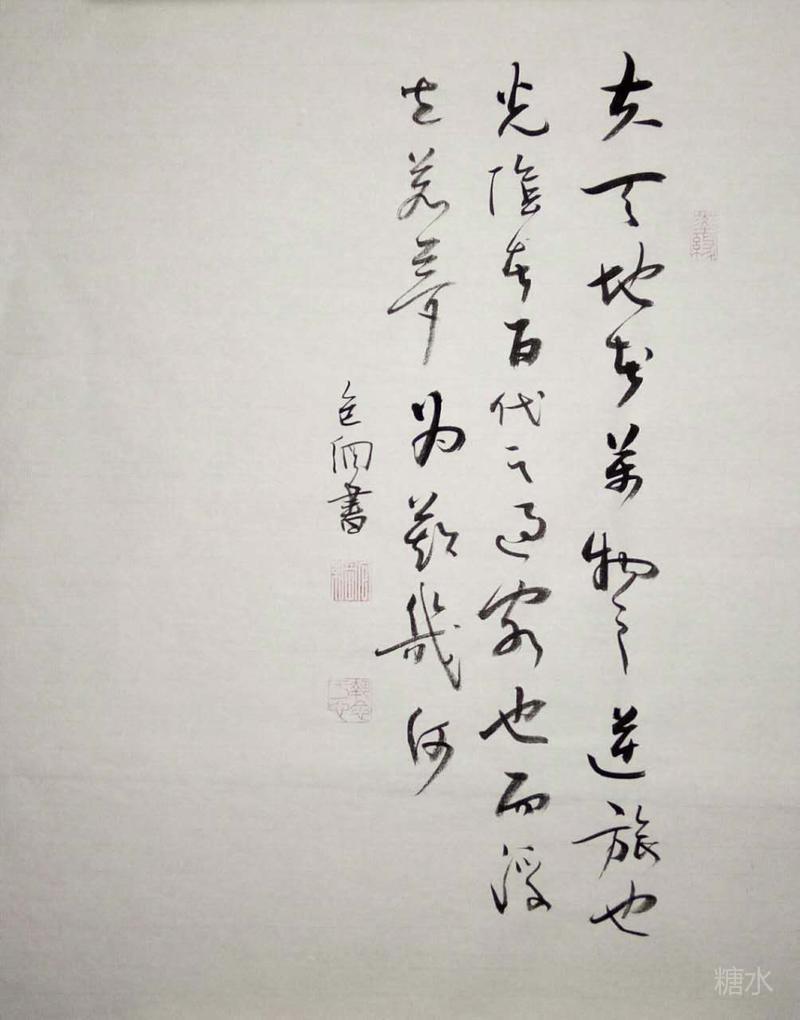 夫天地者萬物之逆旅也
光陰者百代之過客也而浮
生若夢為歡幾何
書
糖水